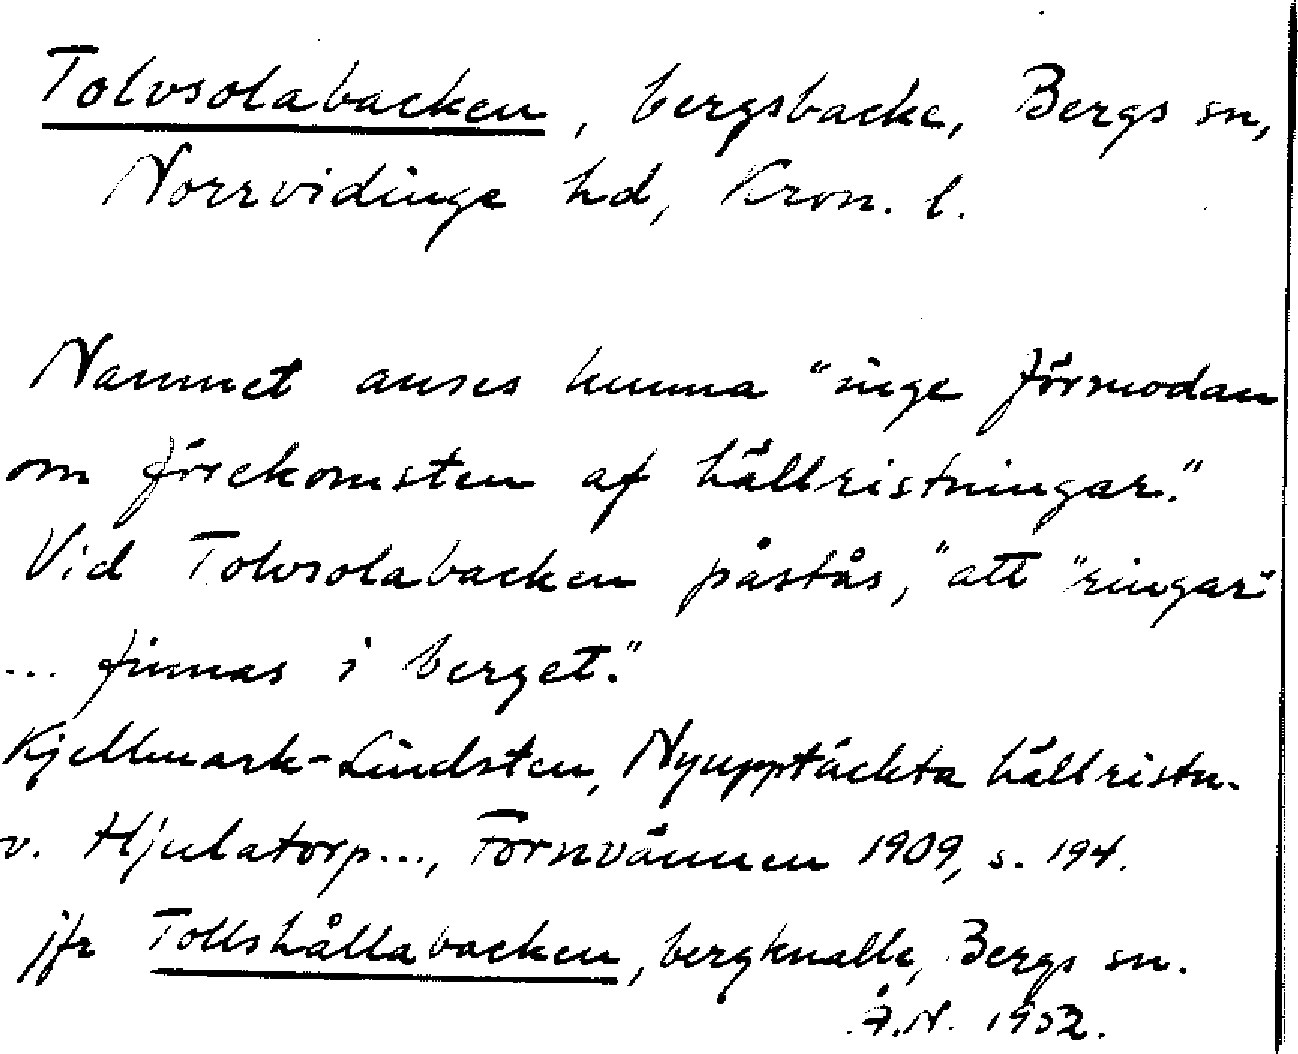 Tolvsolabacken, bergsbacke, Bergs sn,
Norrvidinge hd, Kron. l.
Namnet anses kunna "inge förmodan
om förekomsten af hällristningar."
Vid Tolvsolabacken påstås, "att "ringar"
... finnas i berget."
Kjellmark-Lindsten, Nyupptäckta hällristn.
v. Hjulatorp..., Fornvännen 1909, s. 194.
jfr Tollshållabacken, bergknalle, Bergs sn.
Å.N. 1952.